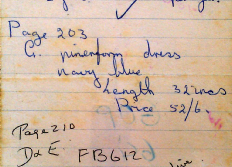 Page 203
G. pineform dress
navy blue
Length 32 ines
Price 52/6.
Page 210
D & E FB612